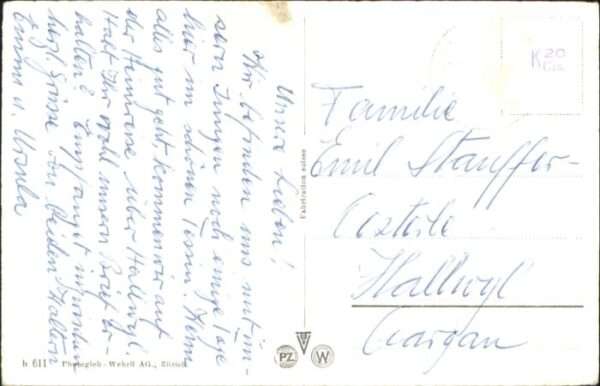 Unsere Lieben!
Wir befinden uns mit un-
sern Jungen noch einige Tage
hier im schönen Tessin. Wenn
alles gut geht, kommen wir auf
der Heimreise über Hallwyl.
Habt Ihr wohl unsern Brief er-
halten? Empfanget
herzl. Grüsse von beiden
Emmi u. Ursula
Familie
Emil Stauffer-
Hallwyl
Aargau
K 20
Cts.
Fabrikation suisse
PZ
W
b 611 Phototgloh-Wehrli AG., Zürich